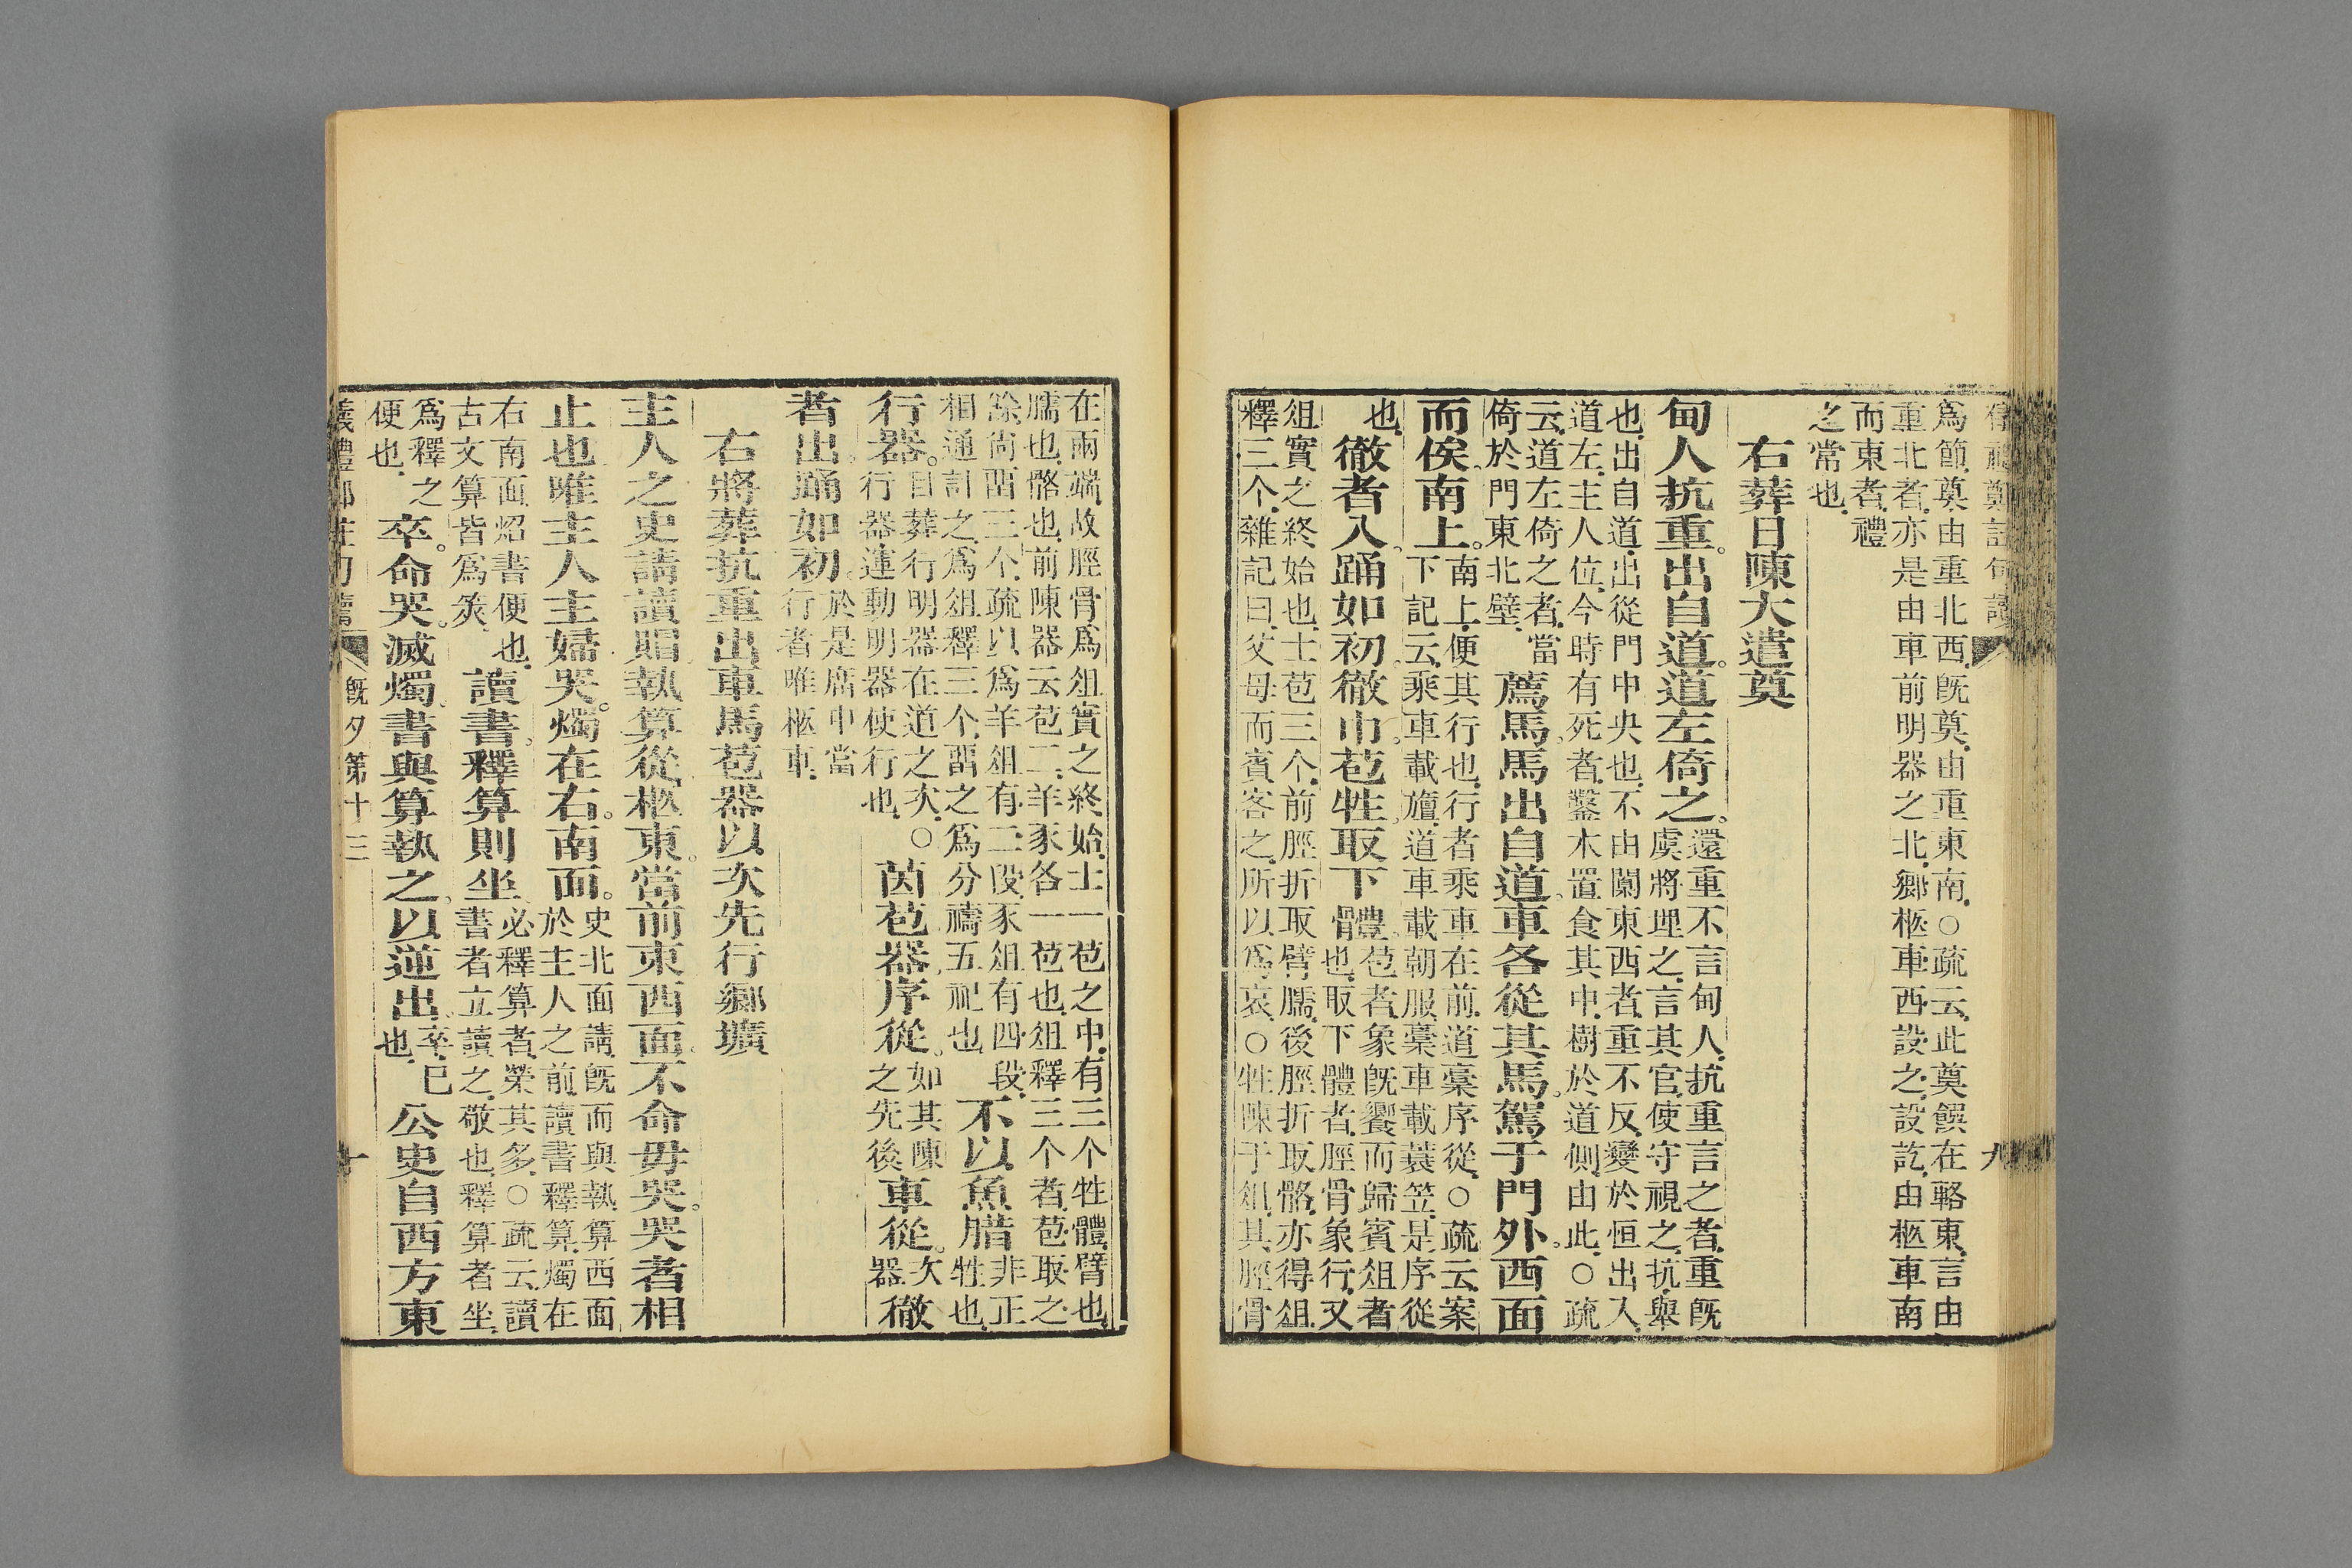 儀禮鄭註句讀 九
爲節奠由重北西既奠由重東南○疏云此奠饌在輅東言由
重北者亦是由車前明器之北鄉柩車西設之設訖由柩車南
而東者禮
之常也
右葬日陳大遣奠
甸人抗重出自道道左倚之還重不言甸人抗重言之者重既
虞將埋之言其官使守視之抗舉
也出自道出從門中央也不由闑東西者重不反變於恒出入
道左主人位今時有死者鑿木置食其中樹於道側由此○疏
云道左倚之者當
倚於門東北壁薦馬馬出自道車各從其馬駕于門外西面
而俟南上南上便其行也行者乘車在前道槀序從○疏云案
下記云乘車載旜道車載朝服槀車載蓑笠是序從
也徹者入踊如初徹巾苞牲取下體苞者象既饗而歸賓俎者
也取下體者脛骨象行又
俎實之終始也士苞三个前脛折取臂臑後脛折取骼亦得俎
釋三个雜記曰父母而賓客之所以爲哀○牲陳于俎其脛骨
在兩端故脛骨爲俎實之終始士一苞之中有三个牲體臂也
臑也骼也前陳器云苞二羊豕各一苞也俎釋三个者苞取之
餘尚留三个疏以爲羊俎有二段豕俎有四段
相通計之爲俎釋三个留之爲分禱五祀也不以魚腊非正
牲也
行器目葬行明器在道之次○
行器運動明器使行也茵苞器序從如其陳
之先後車從次
器徹
者出踊如初於是廟中當
行者唯柩車
右將葬抗重出車馬苞器以次先行鄉壙
主人之史請讀賵執算從柩東當前束西面不命毋哭哭者相
止也唯主人主婦哭燭在右南面史北面請既而與執算西面
於主人之前讀書釋算燭在
右南面炤書便也
古文算皆爲筴讀書釋算則坐必釋算者榮其多○疏云讀
書者立讀之敬也釋算者坐
爲釋之
便也卒命哭滅燭書與算執之以逆出卒已
也公史自西方東
儀禮鄭註句讀 既夕第十三 十